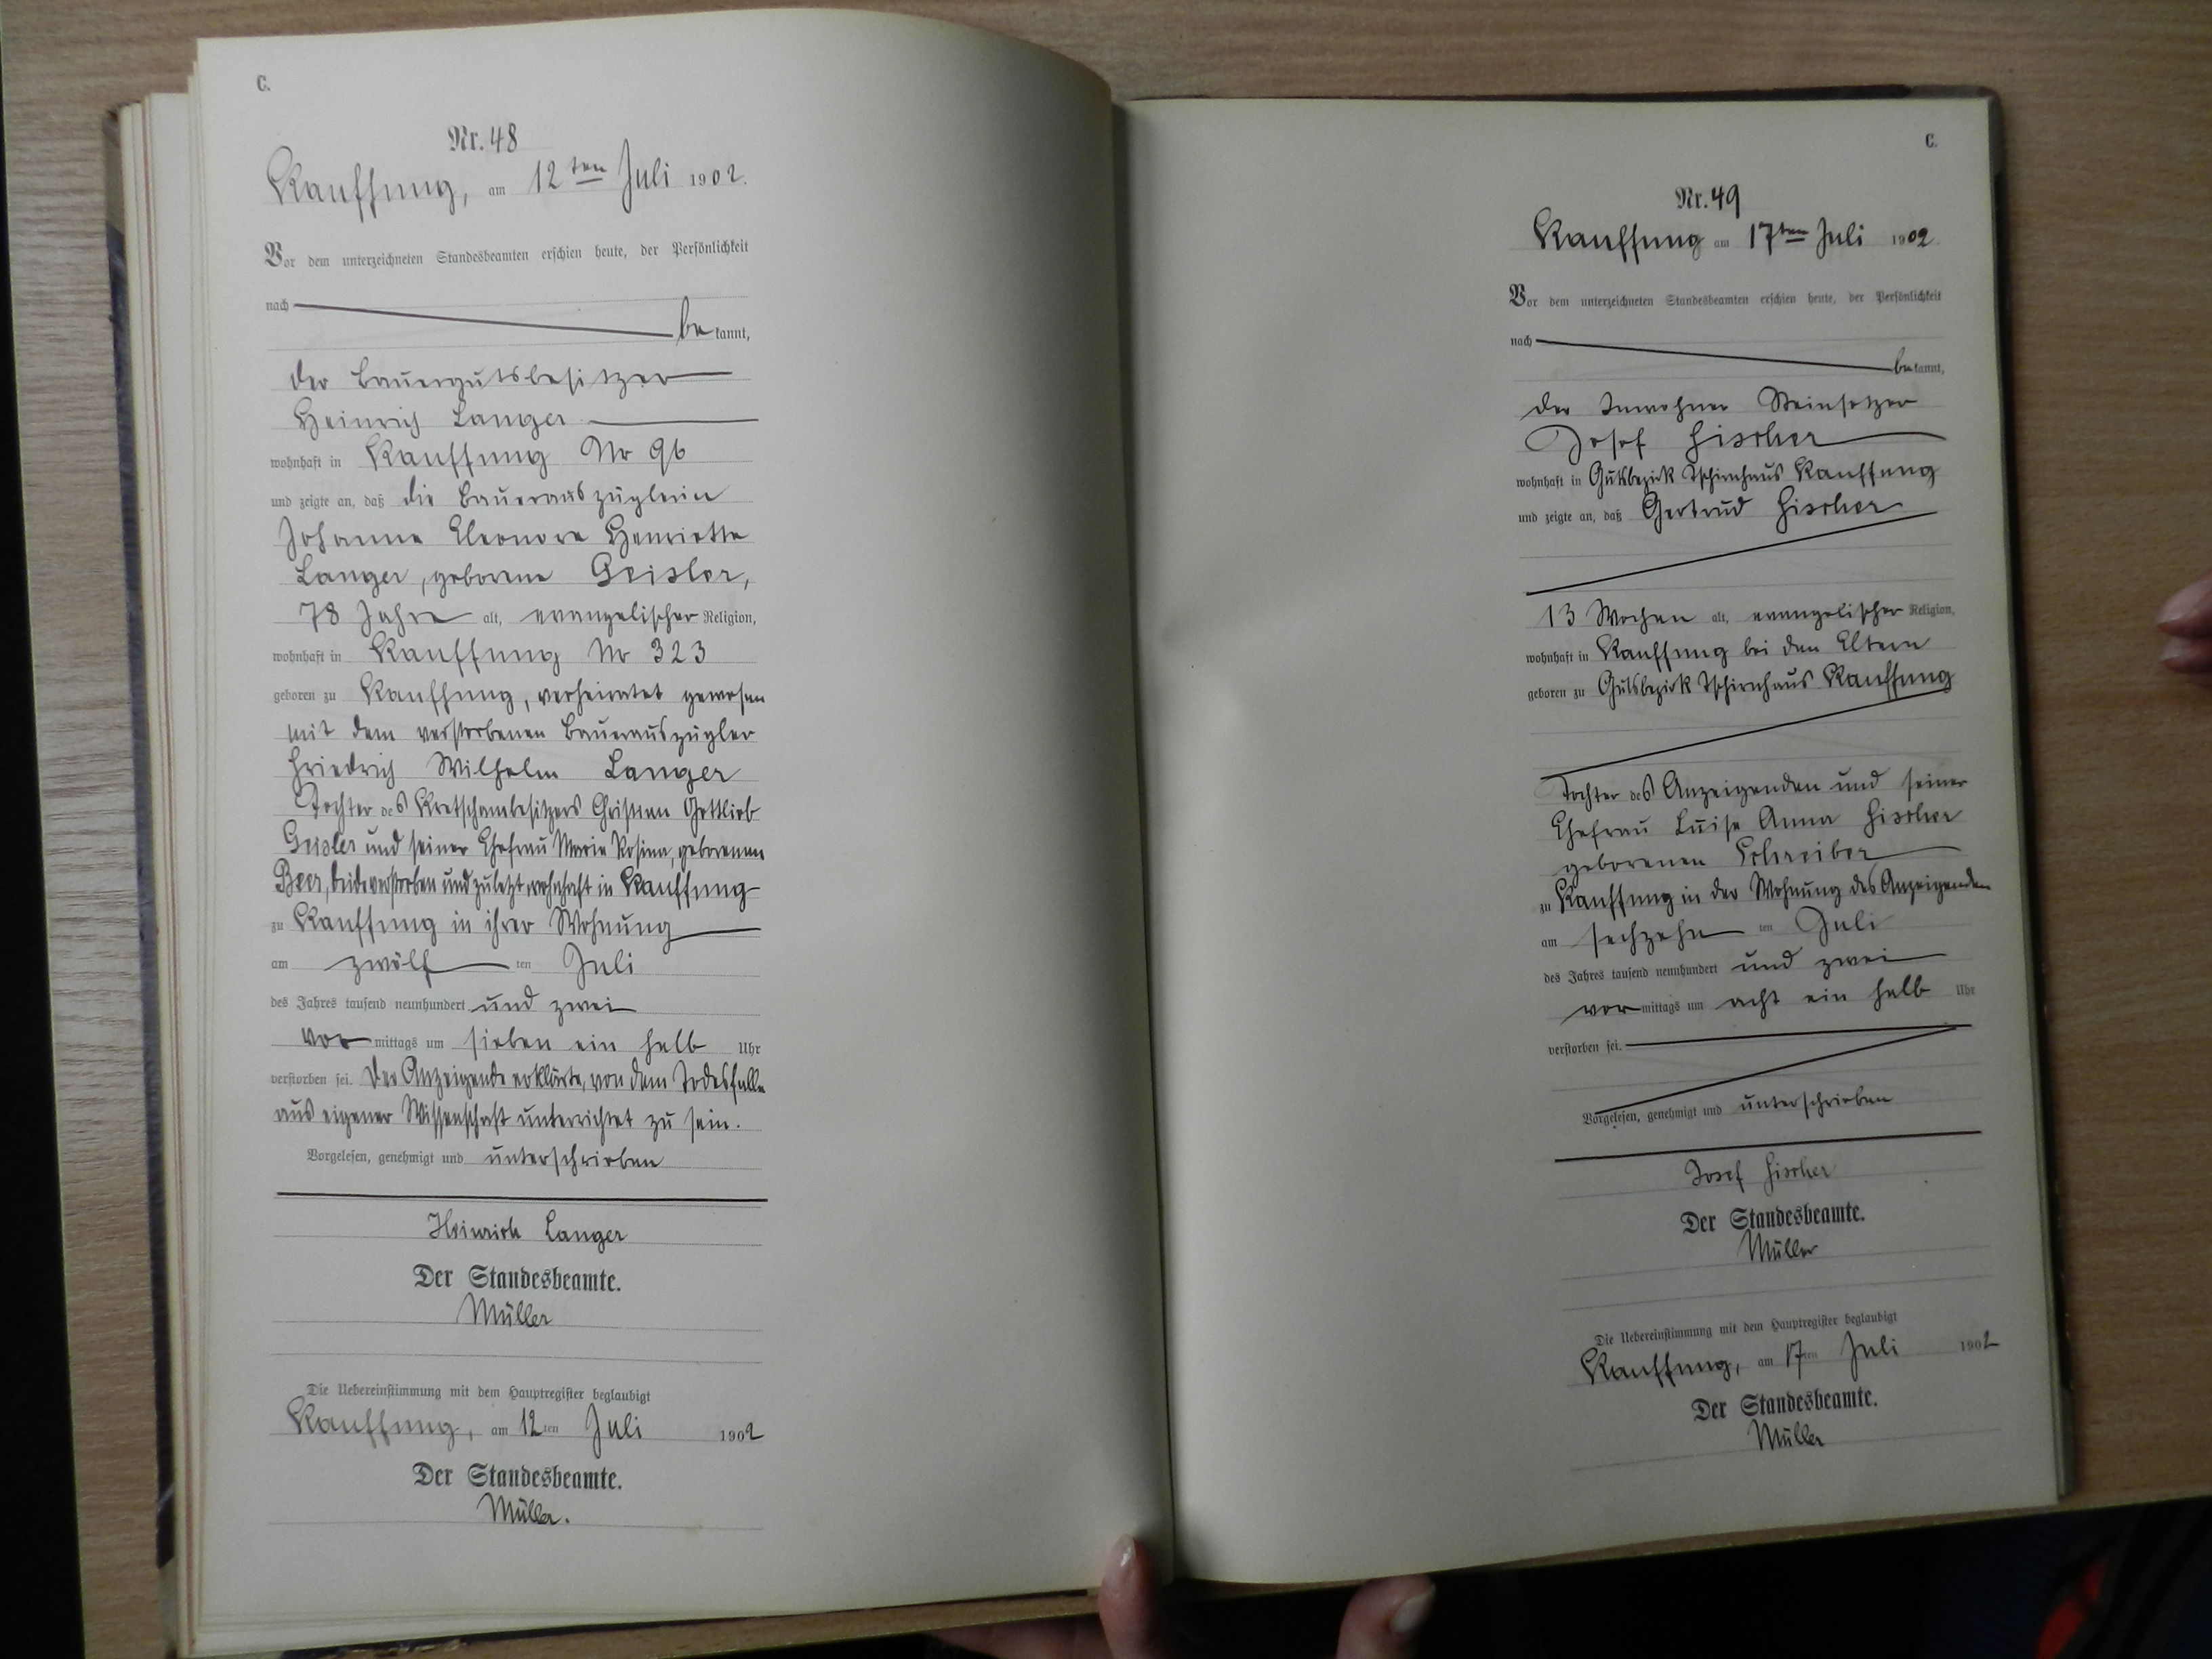 C.
Nr. 48
Kauffung, am 12ten Juli 1902.
Vor dem unterzeichneten Standesbeamten erschien heute, der Persönlichkeit
nach
be kannt,
der Bauergutsbesitzer
Heinrich Langer
wohnhaft in Kauffung Nr 96
und zeigte an, daß die Bauerauszüglerin
Johanne Eleonore Henriette
Langer, geborene Geisler,
78 Jahre alt, evangelischer Religion,
wohnhaft in Kauffung Nr 323
geboren zu Kauffung, verheiratet gewesen
mit dem verstorbenen Bauerauszügler
Friedrich Wilhelm Langer
Tochter des Kretschambesitzers Christian Gottlieb
Geisler und seiner Ehefrau Marie Rosina, geborenen
Beer, beide verstorben und zuletzt wohnhaft in Kauffung
zu Kauffung in ihrer Wohnung
am zwölf ten Juli
des Jahres tausend neunhundert und zwei
vor mittags um sieben ein halb Uhr
verstorben sei. Der Anzeigende erklärte, von dem Todesfalle
aus eigener Wissenschaft unterrichtet zu sein.
Vorgelesen, genehmigt und unterschrieben
Heinrich Langer
Der Standesbeamte.
Müller
Die Uebereinstimmung mit dem Hauptregister beglaubigt
Kauffung, am 12ten Juli 1902
Der Standesbeamte.
Müller.
C.
Nr. 49
Kauffung am 17ten Juli 1902
Vor dem unterzeichneten Standesbeamten erschien heute, der Persönlichkeit
nach
be kannt,
der Inwohner Steinsetzer
Josef Fischer
wohnhaft in Gutsbezirk Tschirnhaus Kauffung
und zeigte an, daß Gertrud Fischer
13 Wochen alt, evangelischer Religion,
wohnhaft in Kauffung bei den Eltern
geboren zu Gutsbezirk Tschirnhaus Kauffung
Tochter des Anzeigenden und seiner
Ehefrau Luise Anna Fischer
geborenen Schreiber
zu Kauffung in der Wohnung des Anzeigenden
am sechzehn ten Juli
des Jahres tausend neunhundert und zwei
vor mittags um acht ein halb Uhr
verstorben sei.
Vorgelesen, genehmigt und unterschrieben
Josef Fischer
Der Standesbeamte.
Müller
Die Uebereinstimmung mit dem Hauptregister beglaubigt
Kauffung, am 17ten Juli 1902
Der Standesbeamte.
Müller